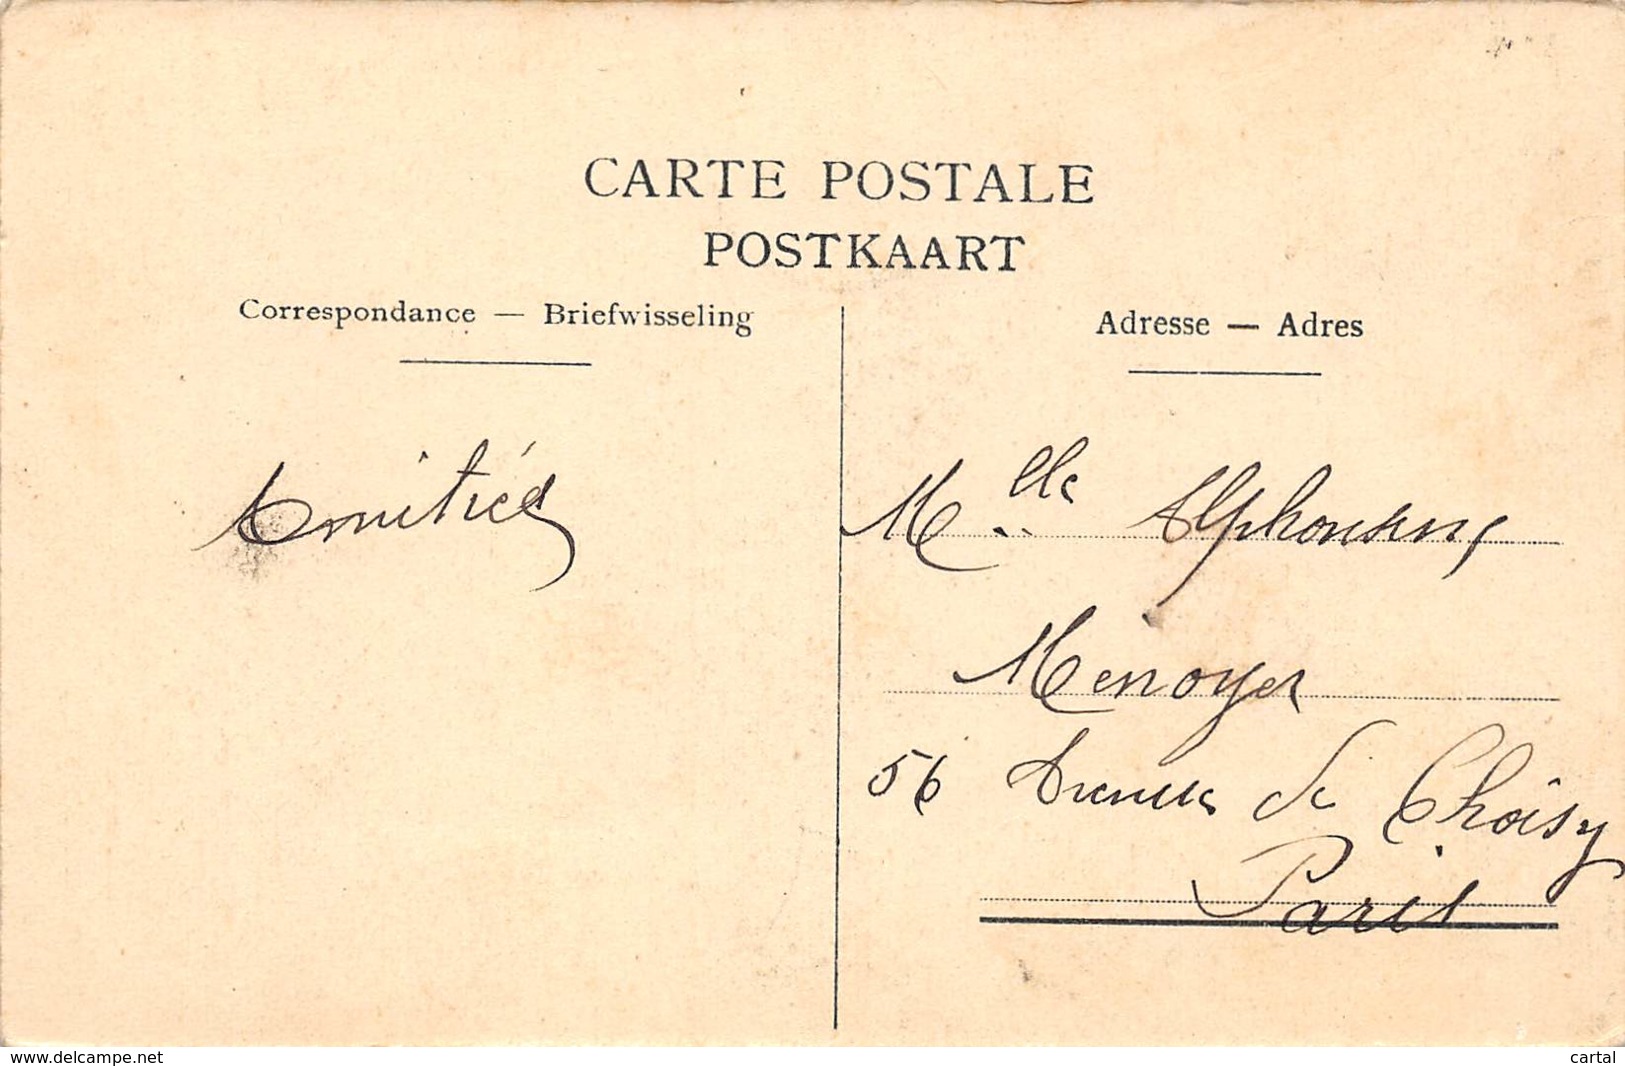 CARTE POSTALE
POSTKAART
Correspondance — Briefwisseling
Adresse — Adres
Amitiés
Mlle Alphonsine
Menoyer
56 Avenue de Choisy
Paris
www.delcampe.net
cartal